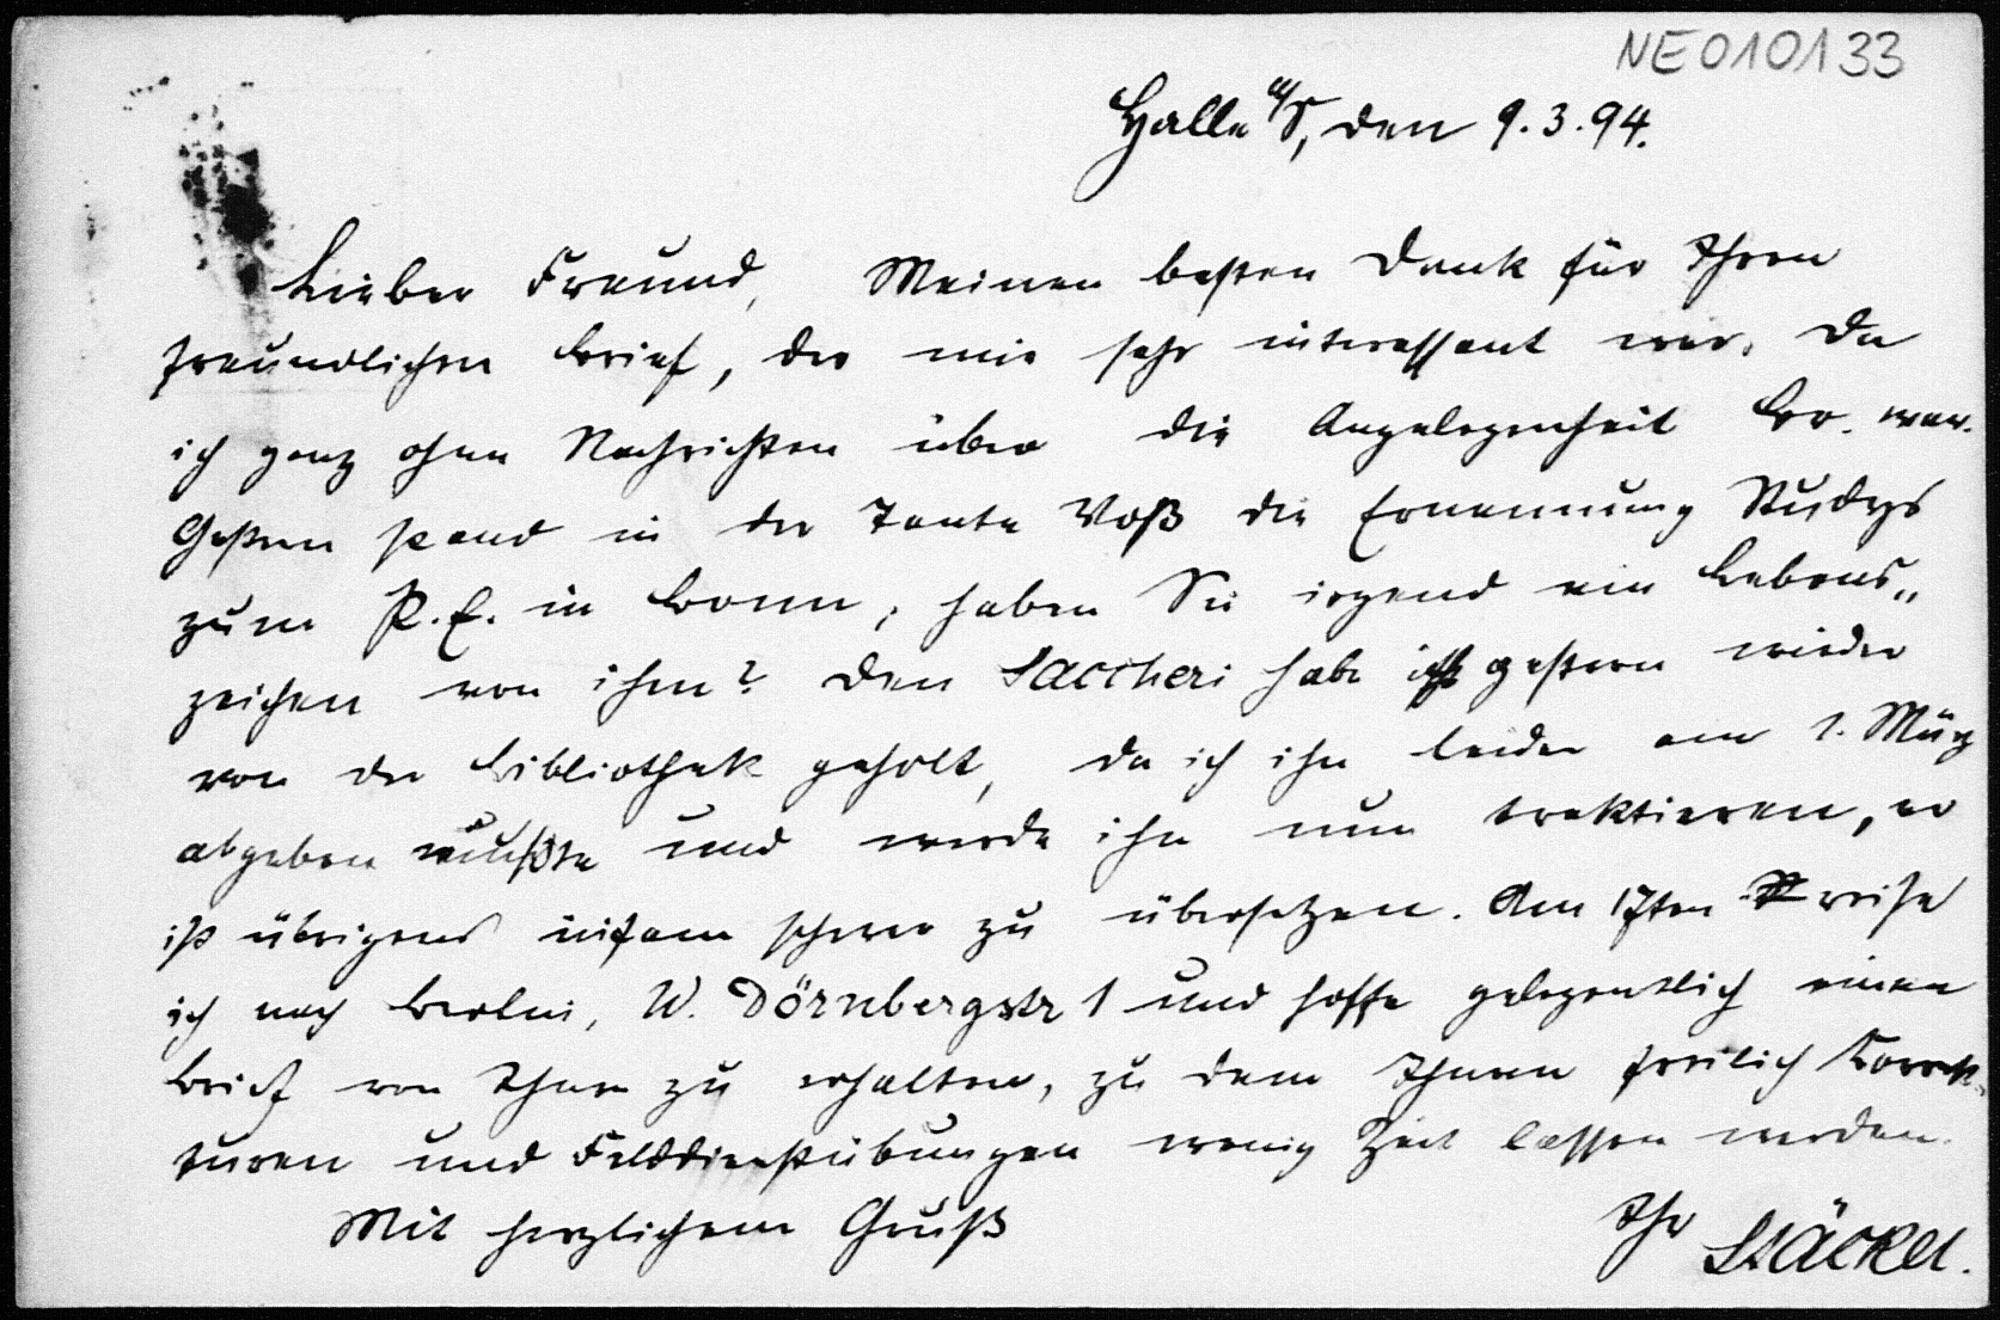 NE010133
Halle a/S, den 9.3.94.
Lieber Freund, Meinen besten Dank für Ihren
freundlichen Brief, der mir sehr interessant war, da
ich ganz ohne Nachrichten über die Angelegenheit Br. war.
Gestern stand in der Tante Voß die Ernennung Studys
zum P. E. in Bonn, haben Sie irgend ein Lebens„
zeichen von ihm? Den Saccheri habe ich gestern wieder
von der Bibliothek geholt, da ich ihn leider am 1. März
abgeben mußte und werde ihn nun traktieren, er
ist übrigens infam schwer zu übersetzen. Am 17ten reise
ich nach Berlin, W. Dörnbergstr 1 und hoffe gelegentlich einen
Brief von Ihnen zu erhalten, zu dem Ihnen freilich Korrek„
turen und Felddienstübungen wenig Zeit lassen werden.
Mit herzlichem Gruß
Ihr Stäckel.